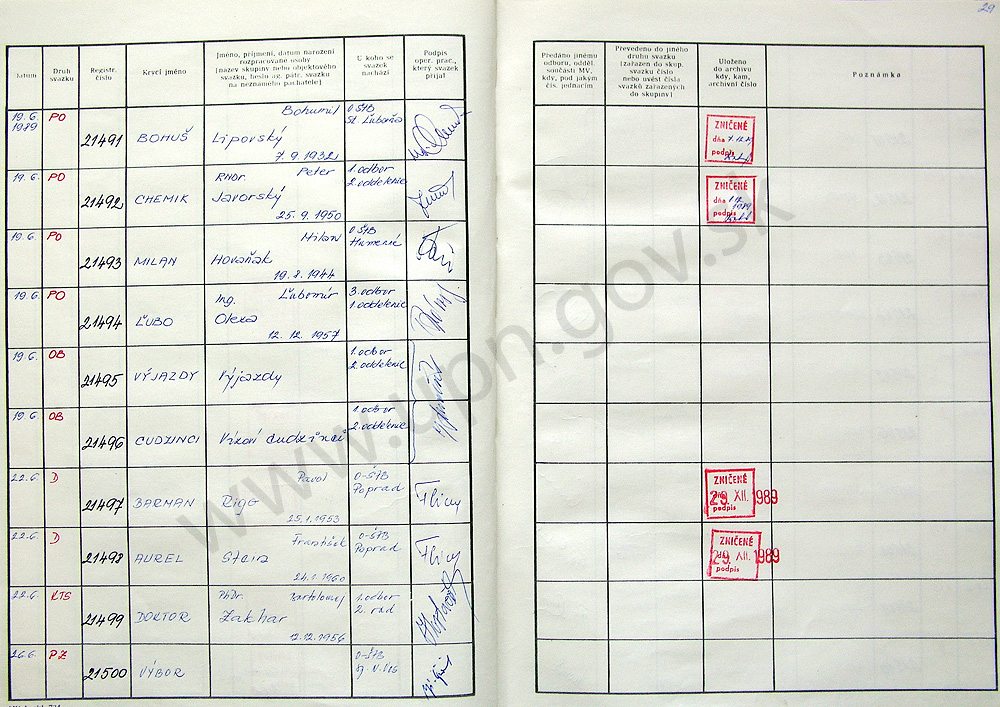 29
Datum
Druh svazku
Registr. číslo
Krycí jméno
Jméno, příjmení, datum narození
rozpracované osoby
(název skupiny nebo objektového
svazku, heslo ag. pátr. svazku
na neznámého pachatele)
U koho se
svazek
nachází
Podpis
oper. prac.,
který svazek
přijal
Předáno jinému
odboru, odděl.
součásti MV,
kdy, pod jakým
čís. jednacím
Převedeno do jiného
druhu svazku
(zařazen do skup.
svazku číslo
nebo uvést čísla
svazků zařazených
do skupiny)
Uloženo
do archivu
kdy, kam,
archivní číslo
Poznámka
19.6. 1989 PO 21491 BOHUŠ Bohumil Lipovský 7.9.1932 O ŠtB St. Ľubovňa
ZNIČENÉ
dňa
podpis
19.6. PO 21492 CHEMIK RNDr. Peter Javorský 25.9.1950 1. odbor 2. oddelenie
ZNIČENÉ
dňa 1989
podpis
19.6. PO 21493 MILAN Milan Hovaňák 19.8.1944 O ŠtB Humenné
19.6. PO 21494 ĽUBO Ing. Ľubomír Olexa 12.12.1957 3. odbor 1. oddelenie
19.6. OB 21495 VÝJAZDY Výjazdy 1. odbor 2. oddelenie
19.6. OB 21496 CUDZINCI Vízoví cudzinci 1. odbor 2. oddelenie
22.6. D 21497 BARMAN Pavol Rigo 25.1.1953 O-ŠtB Poprad
ZNIČENÉ
29. XII. 1989
podpis
22.6. D 21498 AUREL František Stein 24.1.1960 O-ŠtB Poprad
ZNIČENÉ
29. XII. 1989
podpis
22.6. KTS 21499 DOKTOR PhDr. Bartolomej Zakhar 12.12.1956 1. odbor 2. rad
26.6. PZ 21500 VÝBOR O-ŠtB
www.upn.gov.sk